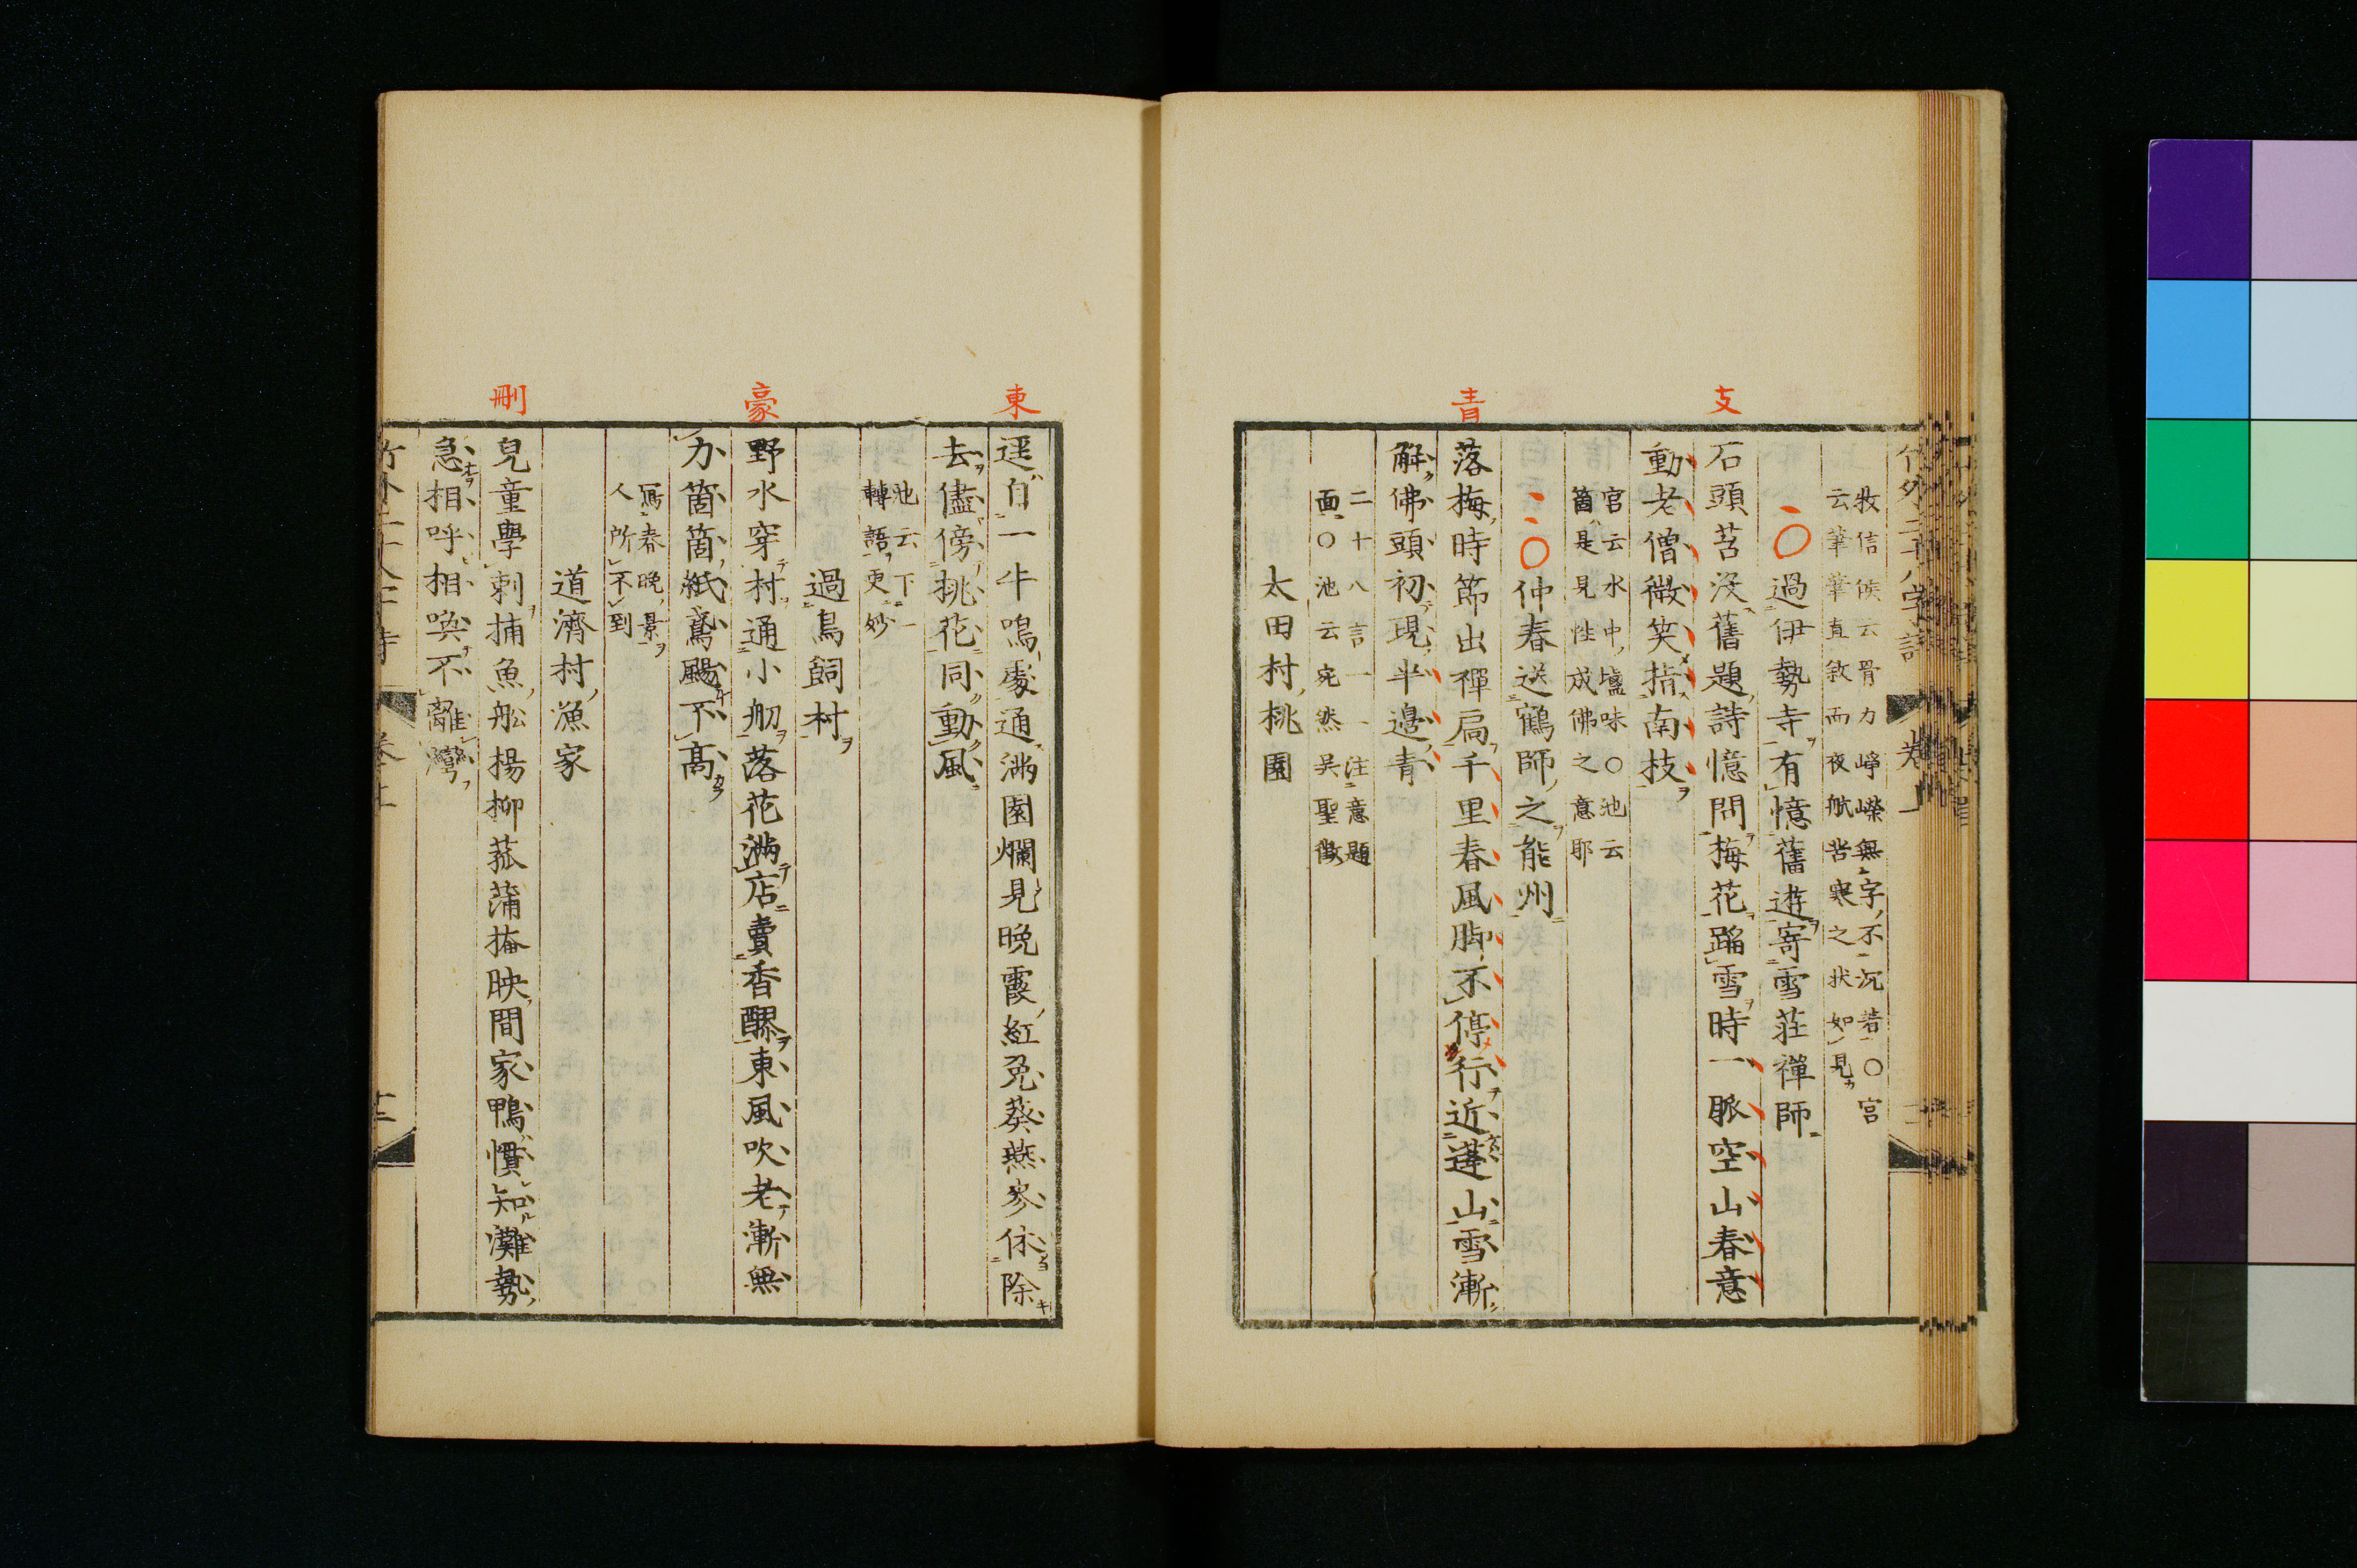 牧信侯云骨力崢嶸無字不沉若〇宮
云筆筆直敘而夜航苦寒之狀如見
過伊勢寺有憶舊遊寄雪荘禪師
支
石頭苔沒舊題詩憶問梅花蹈雪時一脈空山春意
動老僧微笑指南枝
宮云水中塩味〇池云
箇是見性成佛之意耶
〇仲春送鶴師之能州
青
落梅時節出禪扃千里春風脚不停行近蓬山雪漸
解佛頭初現半邊青
二十八言一一注意題
面〇池云宛然吳聖徵
太田村桃園
東
遥自一牛鳴處通滿園爛見晚霞紅兔葵燕麥休除
去儘傍桃花同動風
池云下一
轉語更妙
過鳥飼村
豪
野水穿村通小舠落花滿店賣香醪東風吹老漸無
力箇箇紙鳶颺不高
寫春晚景
人所不到
道濟村漁家
刪
兒童學刺捕魚舩楊柳菰蒲掩映間家鴨慣知灘勢
急相呼相喚不離灣
竹外二十八字詩
卷上
十二